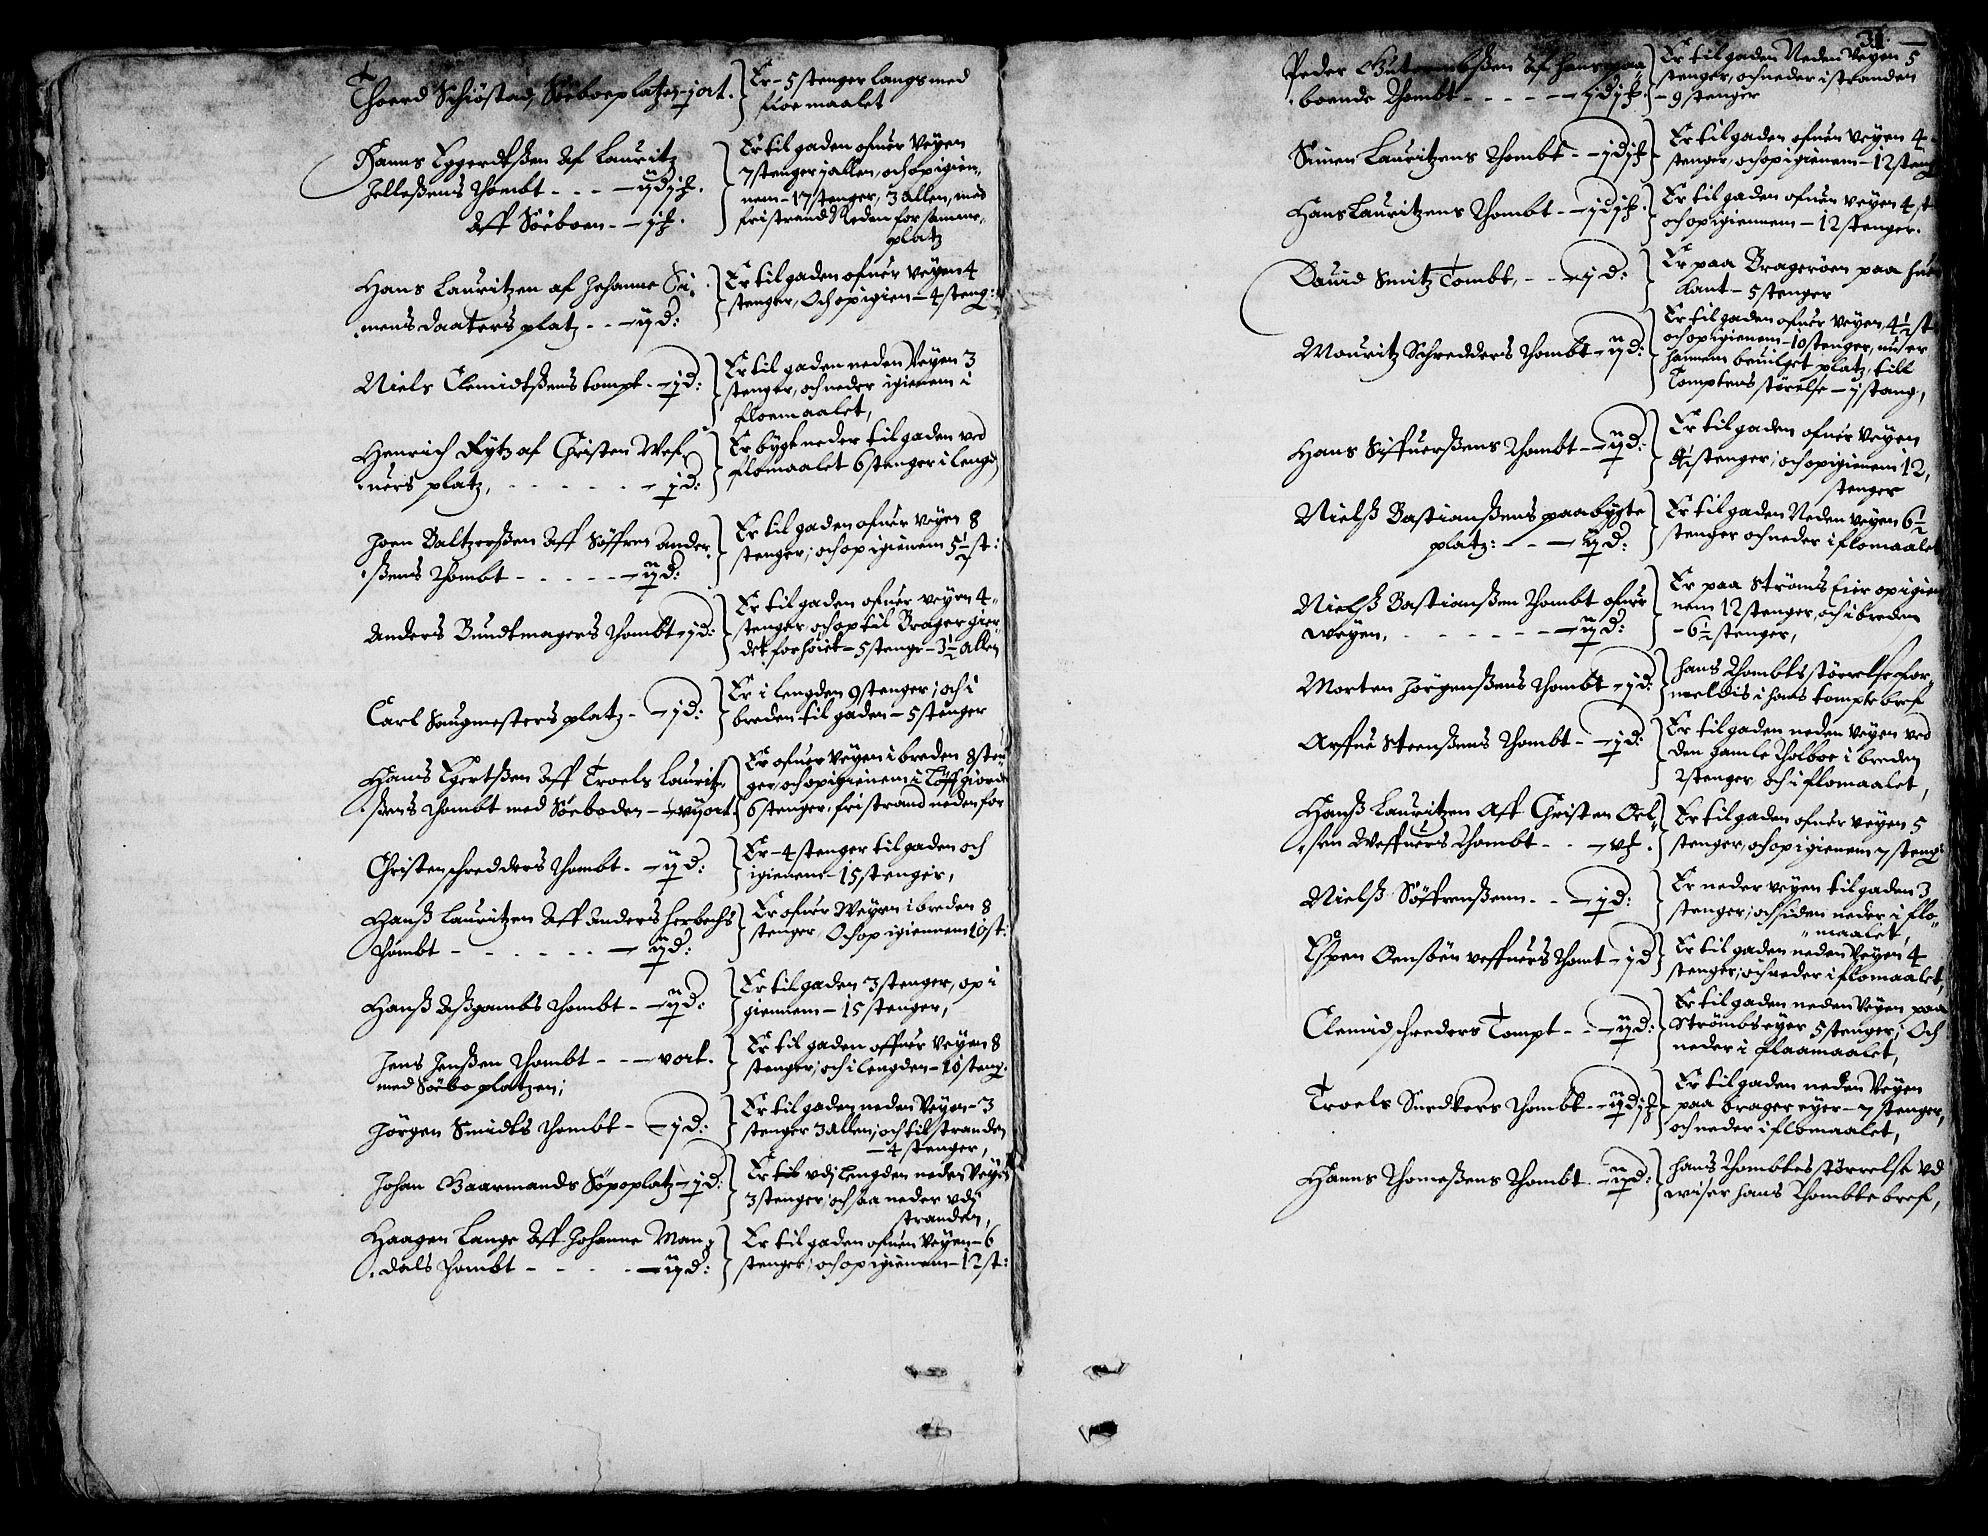 Thoerd Schiöstad, Söeboeplatz – j ort.
Er – 5 stenger langs med
floe maalet
Hanns Eggerdtßen Af Lauritz
Jelleßens thombt - - - – ij d j ƒ.
Aff Söeboen - – j ƒ.
Er til gaden ofuer Veyen
7 stenger j allen, och op igien,,
nem – 17 stenger, 3 allen, med
fri strand Neden for samme
platz
Hans Lauritzen af Johanne Si,,
mens daaters platz - - – ij d:
Er til gaden ofuer Veyen 4
stenger, Och op igien – 4 steng:
Niels Clemidtßens tompt - – j d:
Er til gaden neden Veyen 3
stenger, och neder igienem i
floemaalet,
Henrich Rytz af Christen Wef,,
ners platz, - - - - - - – j d:
Er bygt neder til gaden ved
flomaalet 6 stenger i lengd
Joen Baltzerßen Aff Söffren Ander,,
ßens thombt - - - - - – ij d:
Er til gaden ofuer veyen 8
stenger, och op igienem 5½ st:
Anders Bundtmagers thombt – j d:
Er til gaden ofuer veyen 4
stenger, och op til Brager gier,,
det forhöiet – 5 stenger – 3½ allen
Carl Saugmesters platz - – j d:
Er i lengden 9 stenger, och i
breden til gaden – 5 stenger
Hans Egertßen Aff Troels Lauritz,,
ßens thombt med Söeboden – vij ort
Er ofuer Veyen i breden 8 sten,,
ger, och op igienem i Löffgiorde
6 stenger, fri strand neden for
Christen schredders thombt - – ij d:
Er – 4 stenger til gaden och
igienem – 15 stenger,
Hanß Lauritzen Aff Anders Herbechs
thombt - - - - - - – ij d:
Er ofuer Weyen i breden 8
stenger, Och op igiennem 10 st:
Hanß Aßgambs thombt - – ij d:
Er til gaden 3 stenger, op i
giennem – 15 stenger,
Jens Jenßen thombt - - – v ort.
med Söebo platzen;
Er til gaden offuer Veyen 8
stenger, och i lengden – 10 steng.
Jörgen Smidts thombt - – j d:
Er til gaden neden Veyen – 3
stenger 3 allen, och til stranden
– 4 stenger,
Johan Gaarmands Söpoplatz – j d:
Er til vdj lengden neder Veyen
3 stenger, och saa neder vdj
stranden,
Haagen Lange Aff Johanne Man,,
dels thombt - - - - – ij d:
Er til gaden ofuen Veyen – 6
stenger, och op igienem – 12 st:
31.
Peder Af hans paa
boende thombt - - - - - – j d j ƒ.
Er til gaden Neden Veyen 5
stenger, och neder i stranden
– 9 stenger
Simen Lauritzens thombt - – j d j ƒ
Er til gaden ofuen Veyen 4
stenger, och op igienem – 12 steng
Hans Lauritzens thombt - – j d j ƒ.
Er til gaden ofuen Veyen 4 st
och op igiennem – 12 stenger.
Dauid Smitz Tombt, - – j d:
Er paa Brageröen paa huer
Kant – 5 stenger
Mouritz Schredders thombt – ij d:
Er til gaden ofuer Veyen, 4½ st
och op igienem – 10 stenger, nu er
hannem beuilget platz, till
Tomptens störelse – j stang,
Hans Siffuerßens thombt – ij d:
Er til gaden ofuer Veyen
4½ stenger, och op igienem 12,
stenger
Nielß Bastianßens paabygte
platz: - - - – ij d:
Er til gaden Neden Veyen 6½
stenger och neder i flomaalet
Nielß Bastianßen thombt ofuer
weyen, - - - - - - – ij d:
Er paa Ströms Eier op igien
nem 12 stenger, och i breden
– 6½ stenger,
Morten Jörgenßens thombt – j d:
Hans Thombts störrelse for,,
meldis i hans tompte bref
Arffue Steenßens thombt - – j d:
Er til gaden neden Veyen ved
den gamle tolboe i breden
2 stenger och i flomaalet,
Hanß Lauritzen Aff Christen Oel,,
sen Weffners thombt - - – v ƒ.
Er til gaden ofuer veyen 5
stenger, och op igienem 7 steng
Nielß Söfrenßenn - - – j d:
Er neder veyen til gaden 3
stenger, och siden neder i flo,,
maalet,
Espen Oensöen veffners thomt – j d
Er til gaden neden Veyen 4
stenger, och neder i flomaalet,
Clemid schreders Tompt - - – ij d:
Er til gaden neden Veyen paa
Strömbs eyer 5 stenger, Och
neder i flaamaalet,
Troels Snedkers thombt - – ij d j ƒ
Er til gaden neden Veyen
paa brager eyer – 7 stenger,
och neder i flomaalet,
Hanns Thomeßens thombt - – ij d:
Hans thombtes störrelse vd
wiser hans thombte bref,